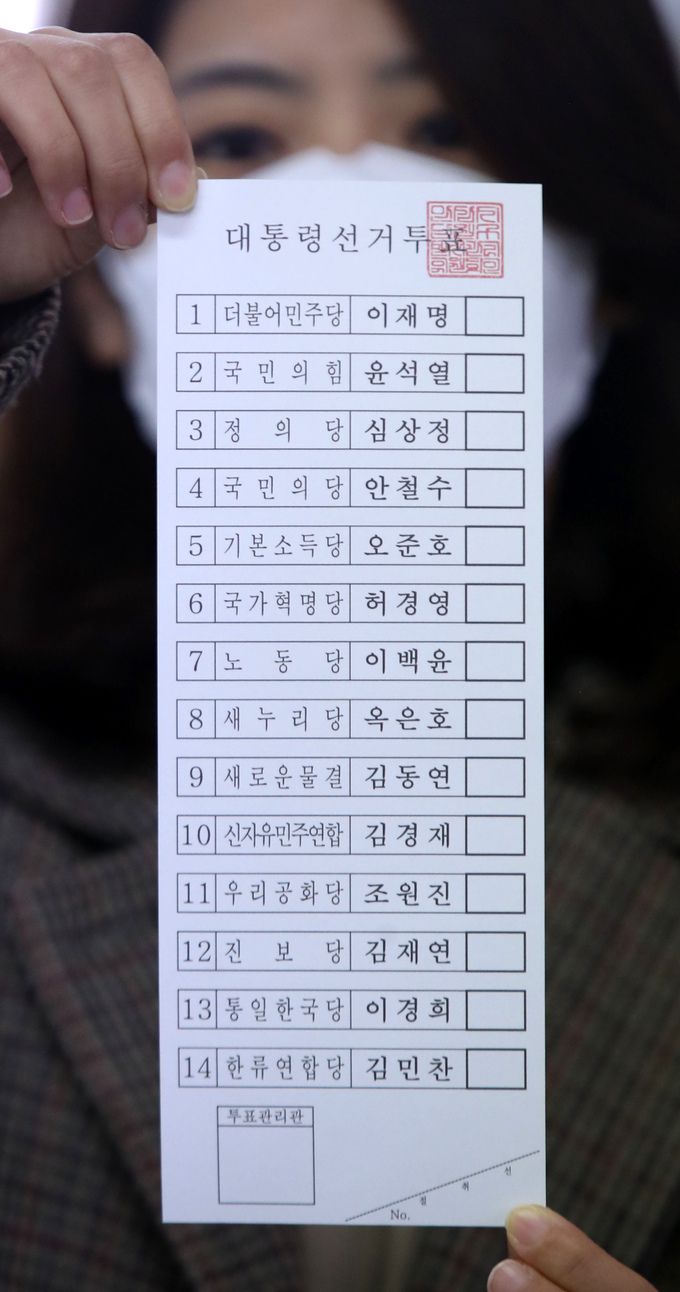 대통령선거투표
1 더불어민주당 이재명
2 국민의힘 윤석열
3 정의당 심상정
4 국민의당 안철수
5 기본소득당 오준호
6 국가혁명당 허경영
7 노동당 이백윤
8 새누리당 옥은호
9 새로운물결 김동연
10 신자유민주연합 김경재
11 우리공화당 조원진
12 진보당 김재연
13 통일한국당 이경희
14 한류연합당 김민찬
투표관리관
절취선
No.